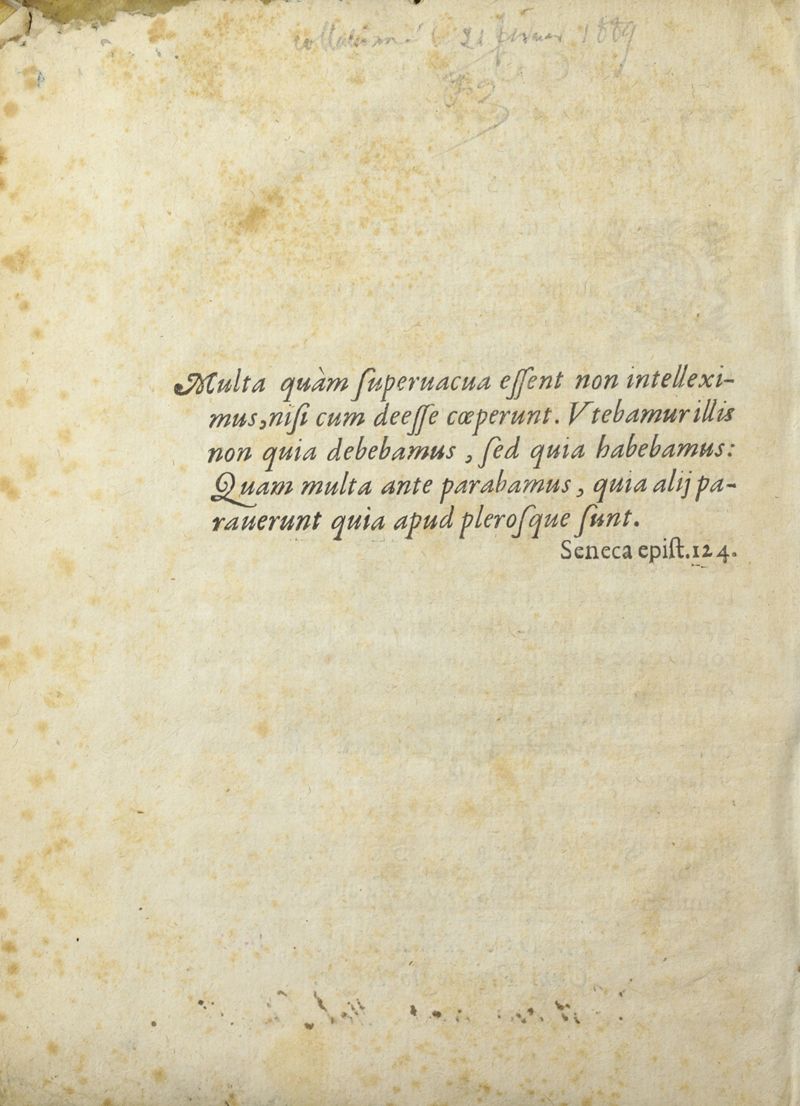 21 1889
Multa quàm ſuperuacua eſſent non intellexi-
mus, niſi cum deeſſe cœperunt. Vtebamur illis
non quia debebamus, ſed quia habebamus:
Quam multa ante parabamus, quia alij pa-
rauerunt quia apud pleroſque ſunt.
Seneca epiſt. 124.